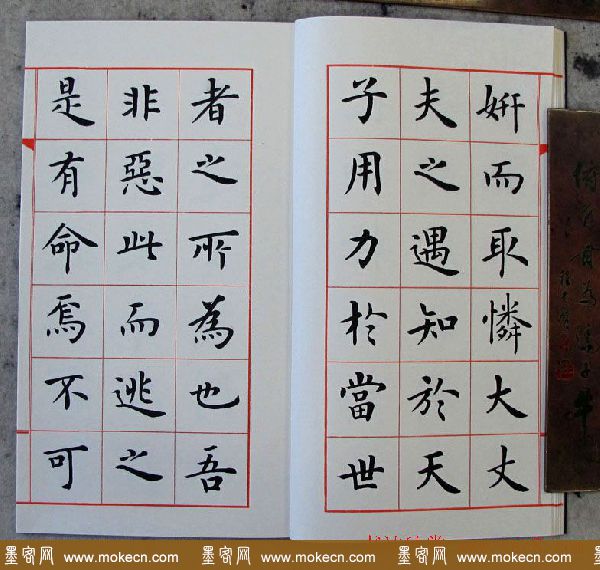 妍而取憐大丈
夫之遇知於天
子用力於當世
者之所為也吾
非惡此而逃之
是有命焉不可
墨客网 www.mokecn.com 墨客网 www.mokecn.com 墨客网 www.mokecn.com